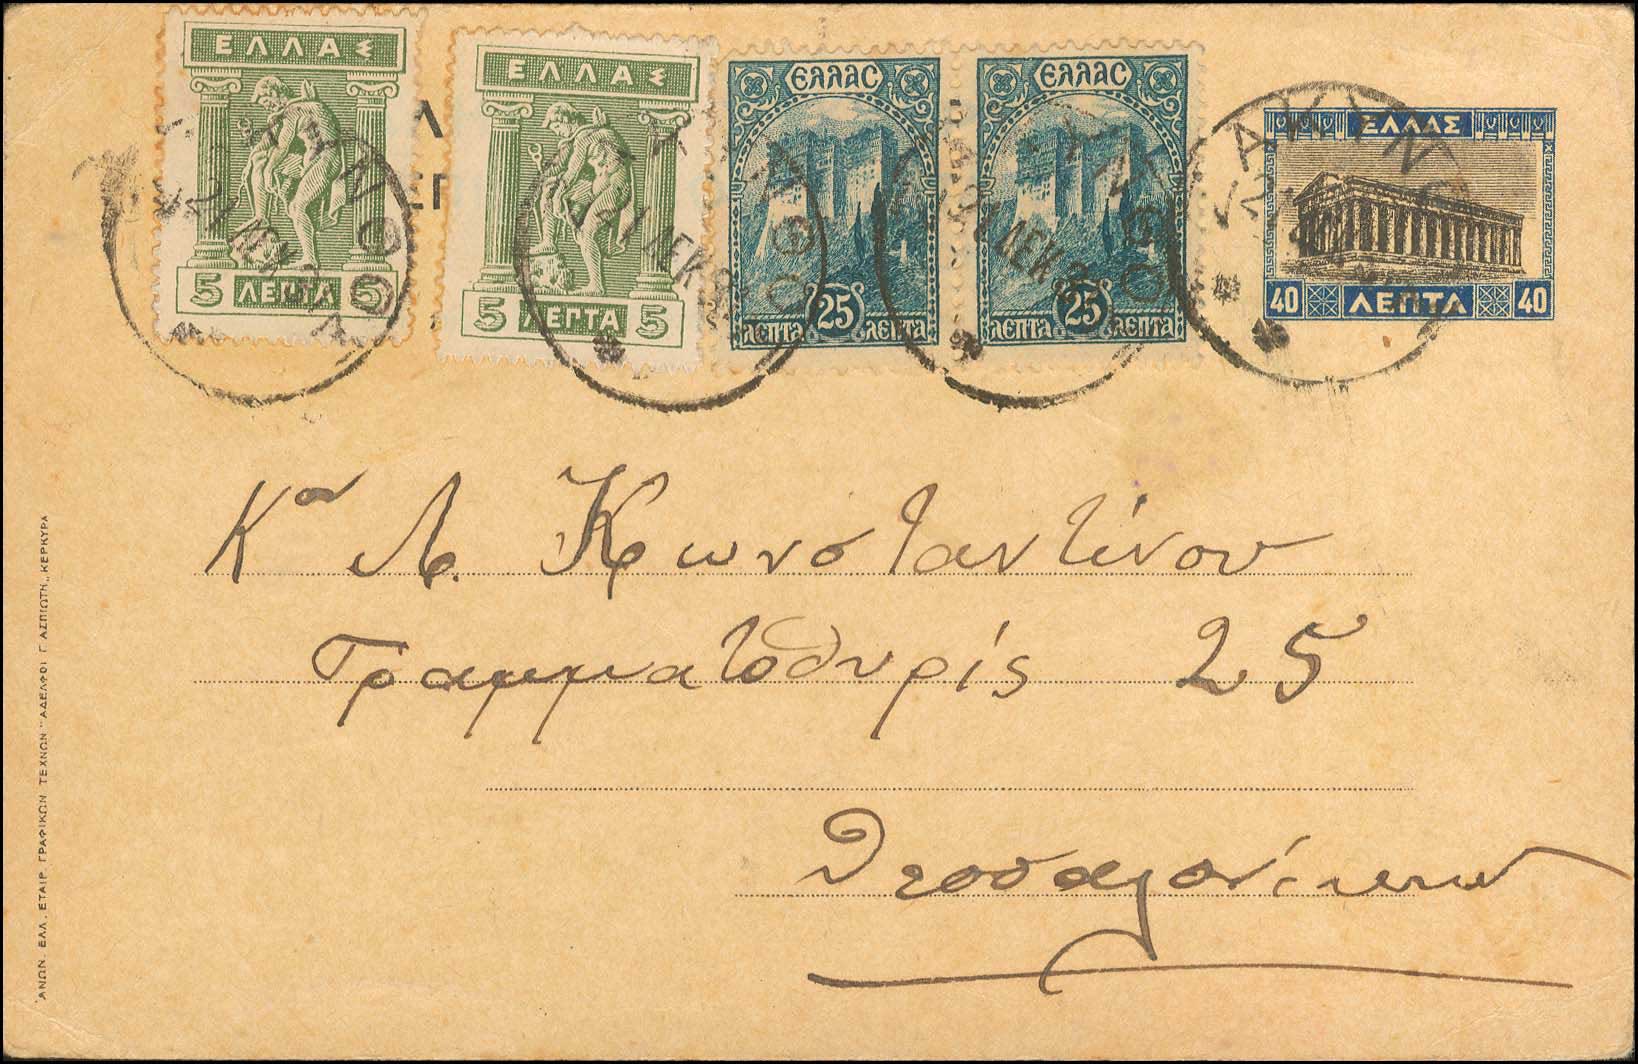 ΕΛΛΑΣ
5 ΛΕΠΤΑ 5
ΕΛΛΑΣ
5 ΛΕΠΤΑ 5
ΕΛΛΑΣ
25
ΛΕΠΤΑ ΛΕΠΤΑ
ΕΛΛΑΣ
25
ΛΕΠΤΑ ΛΕΠΤΑ
ΕΛΛΑΣ
40 ΛΕΠΤΑ 40
ΖΑΚΥΝΘΟΣ
21 ΔΕΚ
Κον Λ. Κωνσταντίνου
Γραμματοθυρίς 25
Θεσσαλονίκην
ΑΝΩΝ. ΕΛΛ. ΕΤΑΙΡ. ΓΡΑΦΙΚΩΝ ΤΕΧΝΩΝ "ΑΔΕΛΦΟΙ Γ. ΑΣΠΙΩΤΗ„ ΚΕΡΚΥΡΑ